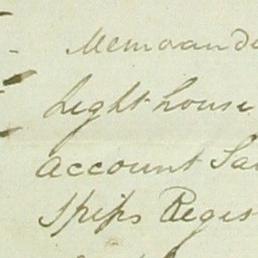 Memorand
Light house
Account Sa
Ships Regis